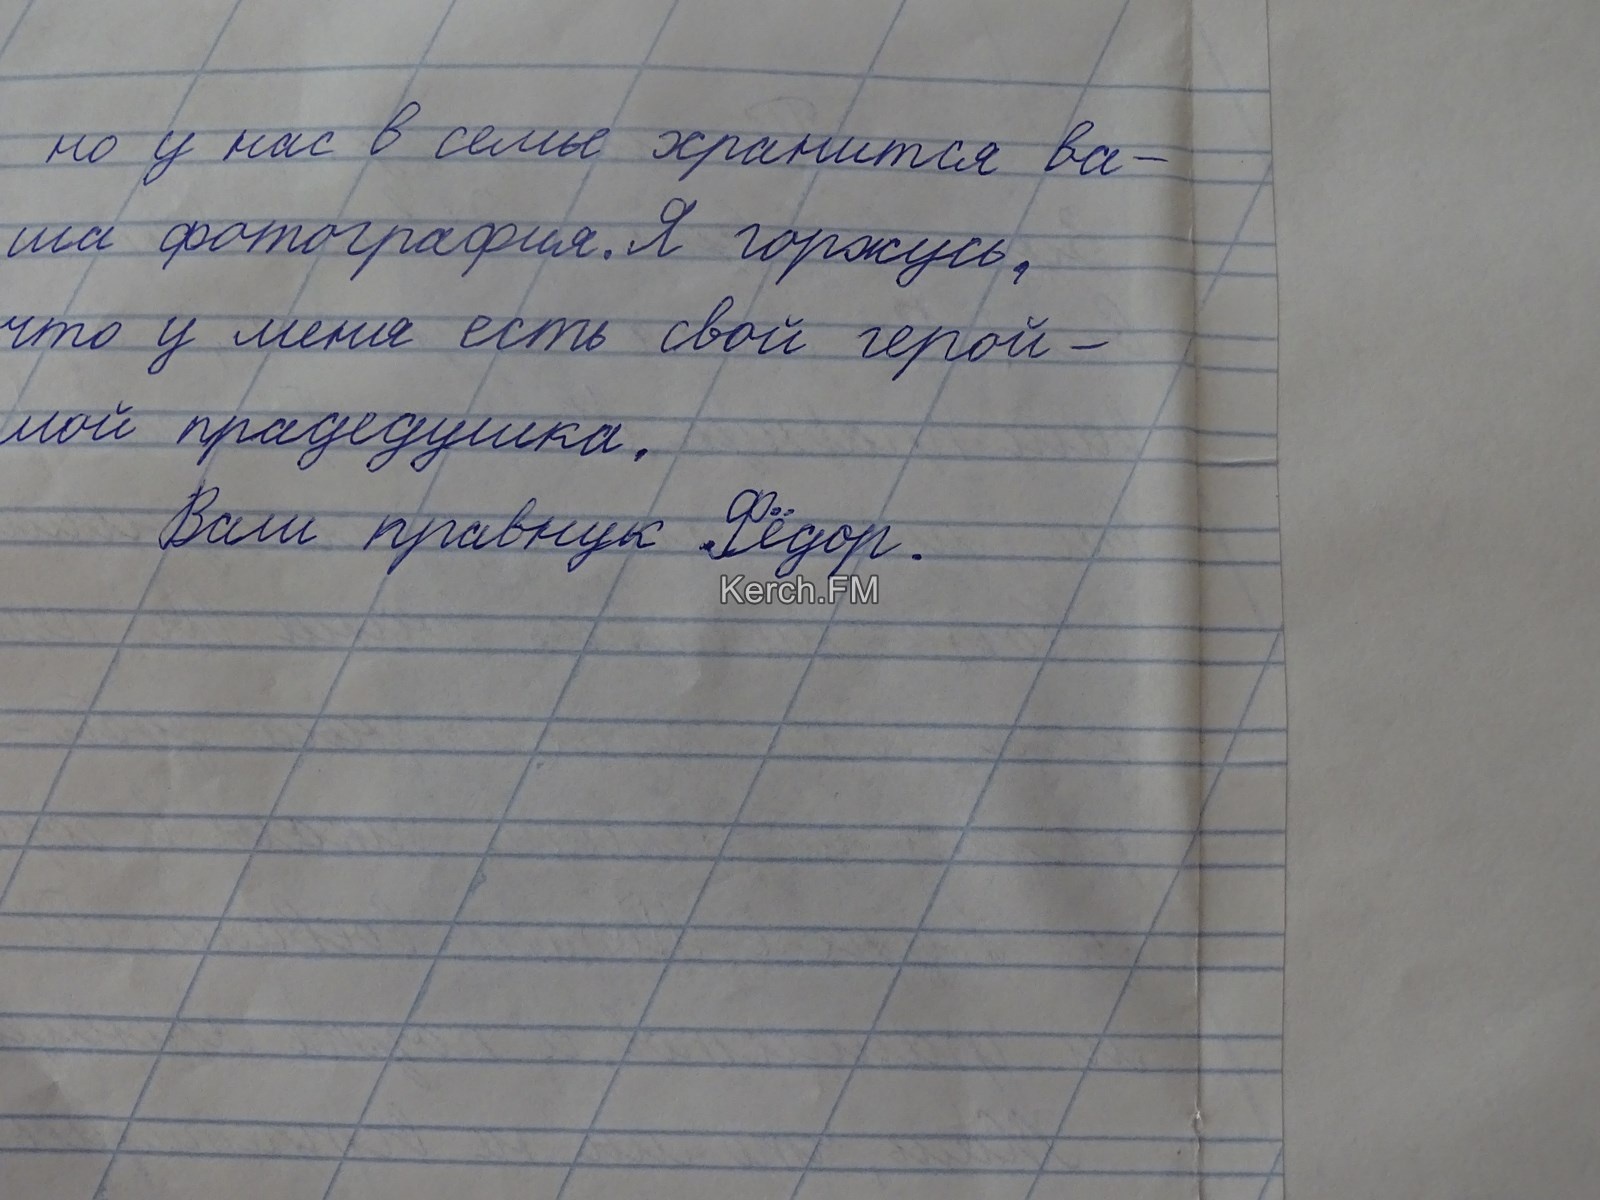 но у нас в семье хранится ва-
ша фотография. Я горжусь,
что у меня есть свой герой -
мой прадедушка.
Ваш правнук Фёдор.
Kerch.FM